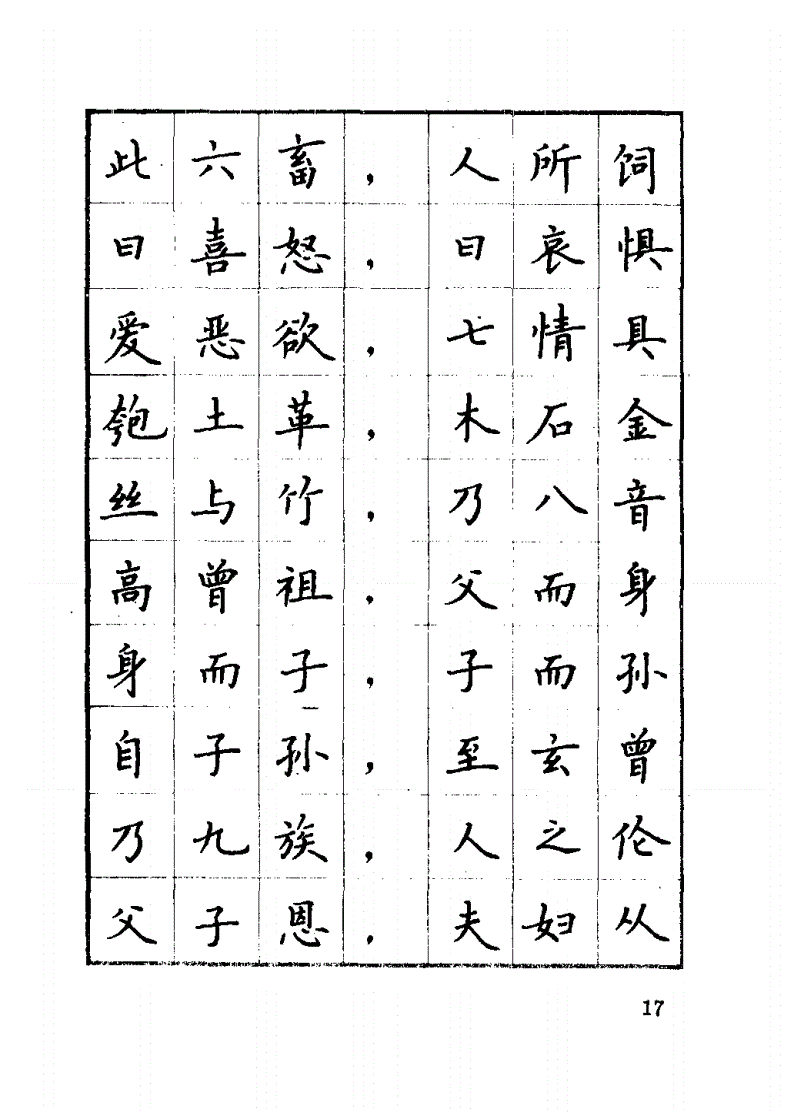 此六畜，人所饲
曰喜怒，曰哀惧
爱恶欲，七情具
匏土革，木石金
丝与竹，乃八音
高曾祖，父而身
身而子，子而孙
自子孙，至玄曾
乃九族，人之伦
父子恩，夫妇从
17